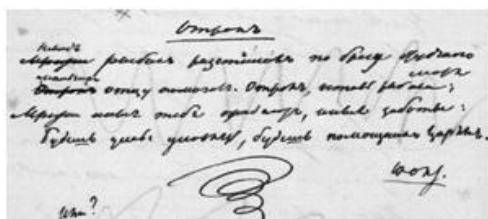 Отрокъ
Неводъ
Мрежи рыбакъ разстилалъ по брегу студенаго
мальчикъ моря
Отрокъ отцу помогалъ. Отрокъ, оставь рыбака;
Мрежи иныя тебя ожидаютъ, иныя заботы:
Будешь умы уловлять, будешь помощникъ Царямъ.